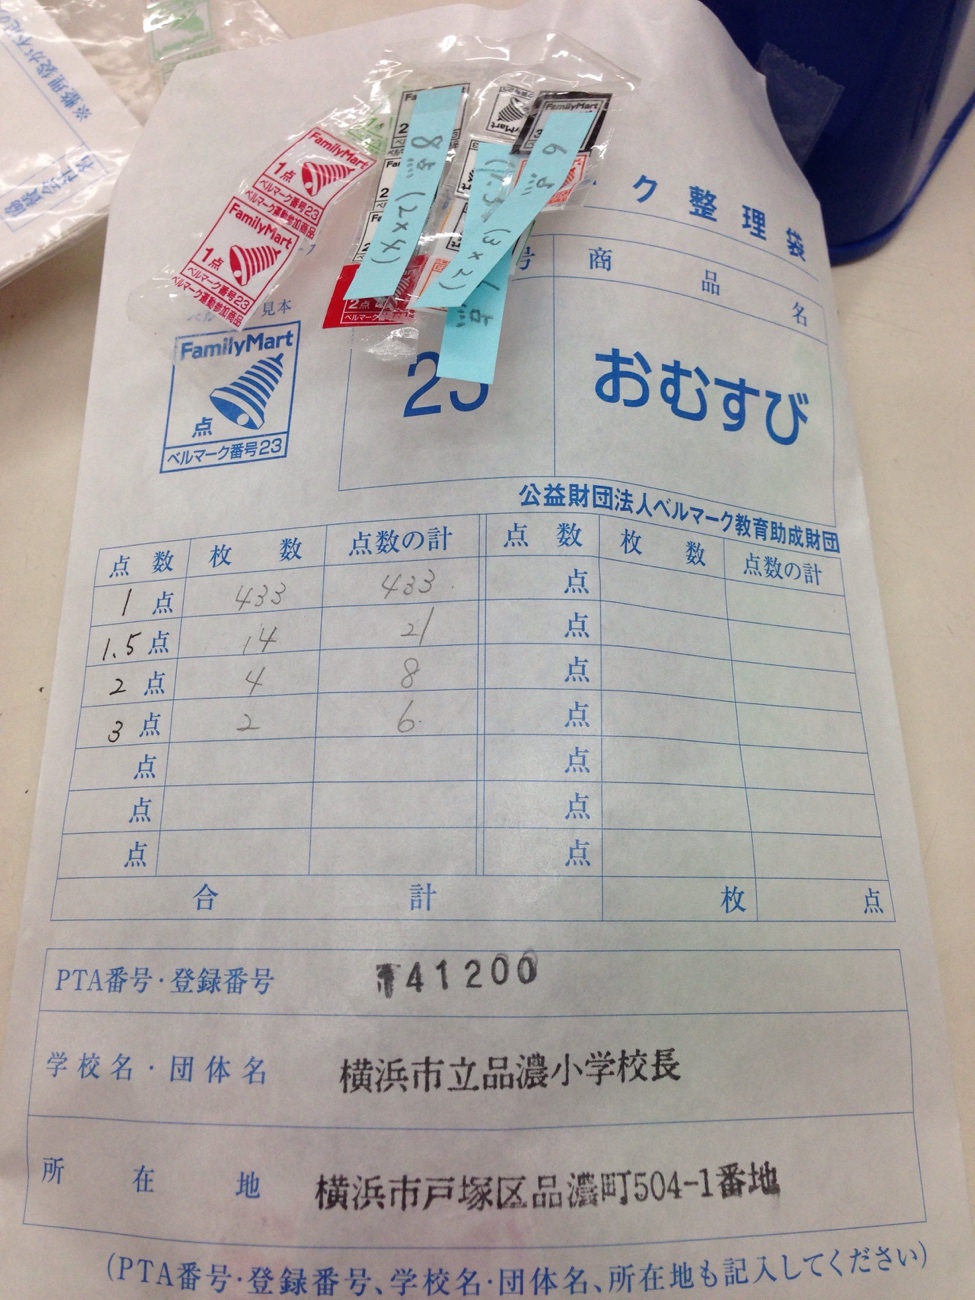 ク整理袋
FamilyMart
1点
ベルマーク番号23
ベルマーク運動参加商品
FamilyMart
1点
ベルマーク番号23
ベルマーク運動参加商品
2点
8点(2×4)
6点(3×2)
見本
FamilyMart
点
ベルマーク番号23
号
商品名
23
おむすび
公益財団法人ベルマーク教育助成財団
点数 枚数 点数の計 点数 枚数 点数の計
1点 433 433 点
1.5点 14 21 点
2点 4 8 点
3点 2 6 点
点 点
点 点
点 点
合計 枚 点
PTA番号・登録番号 141200
学校名・団体名 横浜市立品濃小学校長
所在地 横浜市戸塚区品濃町504-1番地
(PTA番号・登録番号、学校名・団体名、所在地も記入してください)